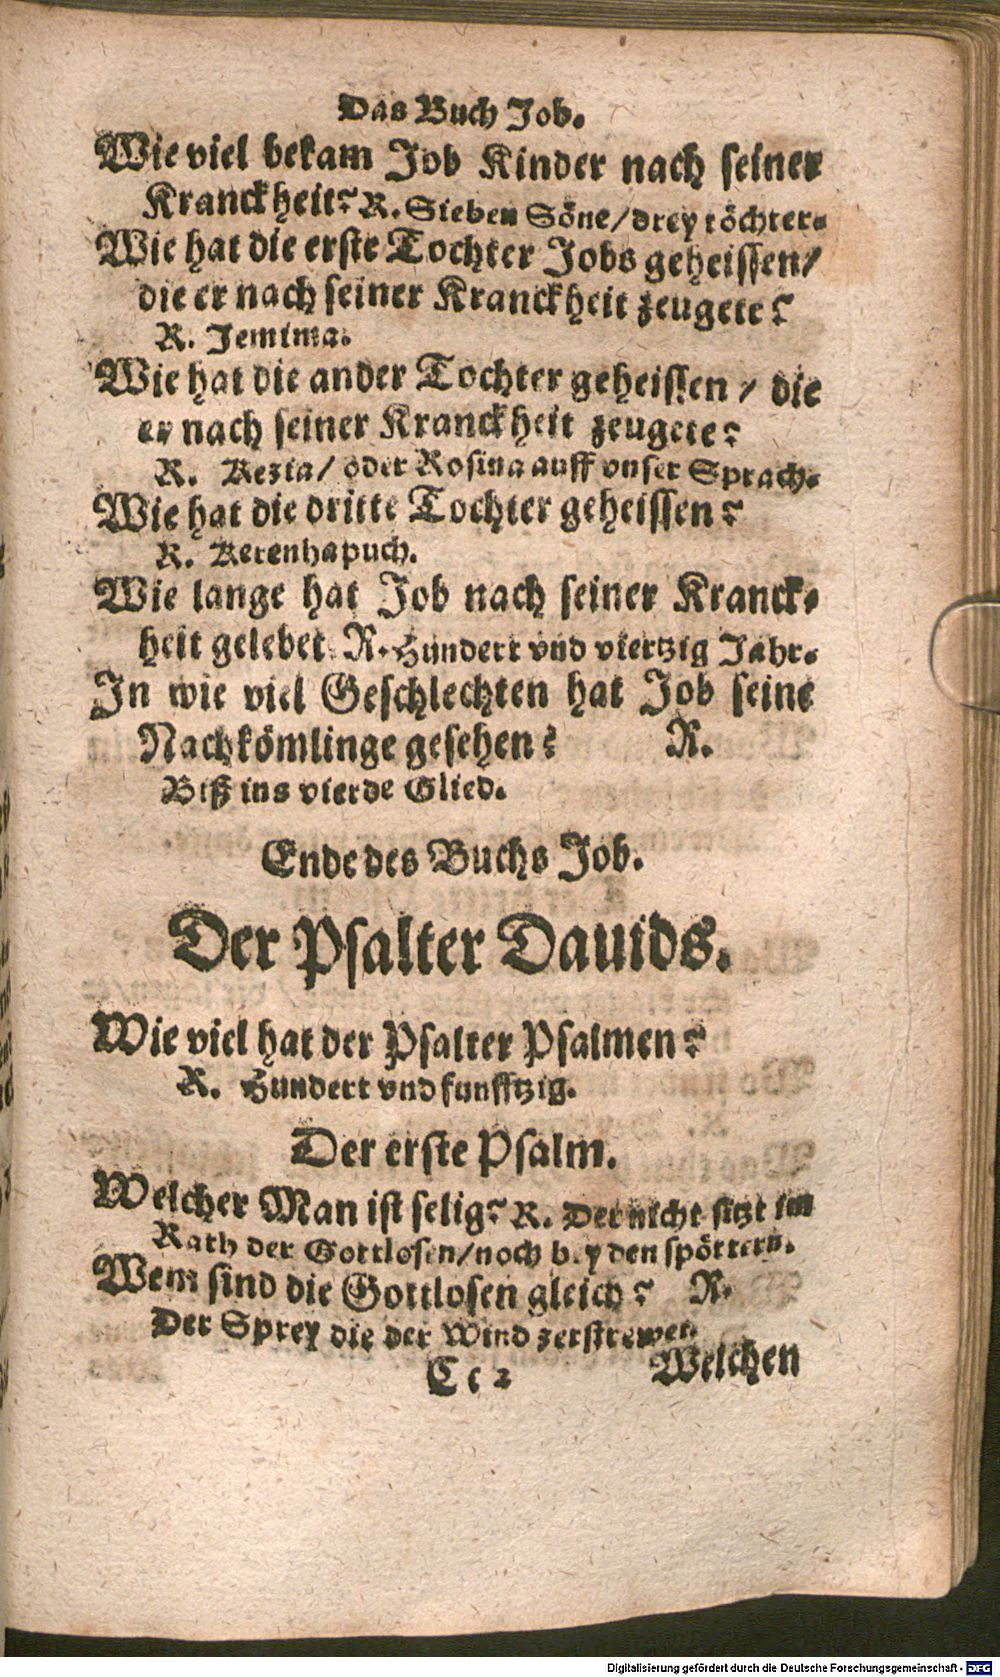 Das Buch Job.
Wie viel bekam Job Kinder nach seiner
Kranckheit? R. Sieben Söne/drey töchter.
Wie hat die erste Tochter Jobs geheissen/
die er nach seiner Kranckheit zeugete?
R. Jemima.
Wie hat die ander Tochter geheissen / die
er nach seiner Kranckheit zeugete?
R. Kezia/ oder Rosina auff vnser Sprach.
Wie hat die dritte Tochter geheissen?
R. Kerenhapuch.
Wie lange hat Job nach seiner Kranck-
heit gelebet R. Hundert vnd viertzig Jahr.
In wie viel Geschlechten hat Job seine
Nachkömlinge gesehen? R.
Biß ins vierde Glied.
Ende des Buchs Job.
Der Psalter Dauids.
Wie viel hat der Psalter Psalmen?
R. Hundert vnd funfftzig.
Der erste Psalm.
Welcher Man ist selig? R. Der nicht sitzt im
Rath der Gottlosen/noch bey den spöttern.
Wem sind die Gottlosen gleich? R.
Der Sprey die der Wind zerstrewet.
Cc 2 Welchen
Digitalisierung gefördert durch die Deutsche Forschungsgemeinschaft - DFG